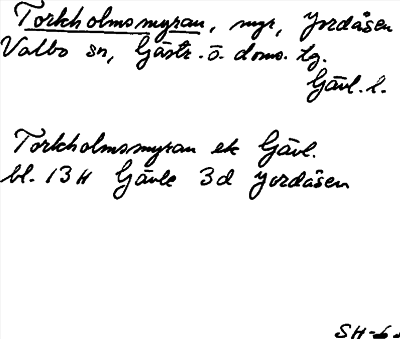 Torkholmsmyran, myr, Jordåsen
Valbo sn, Gästr. ö. doms. tg.
Gävl. l.
Torkholmsmyran ek Gävl.
bl. 13H Gävle 3d Jordåsen
SH-6